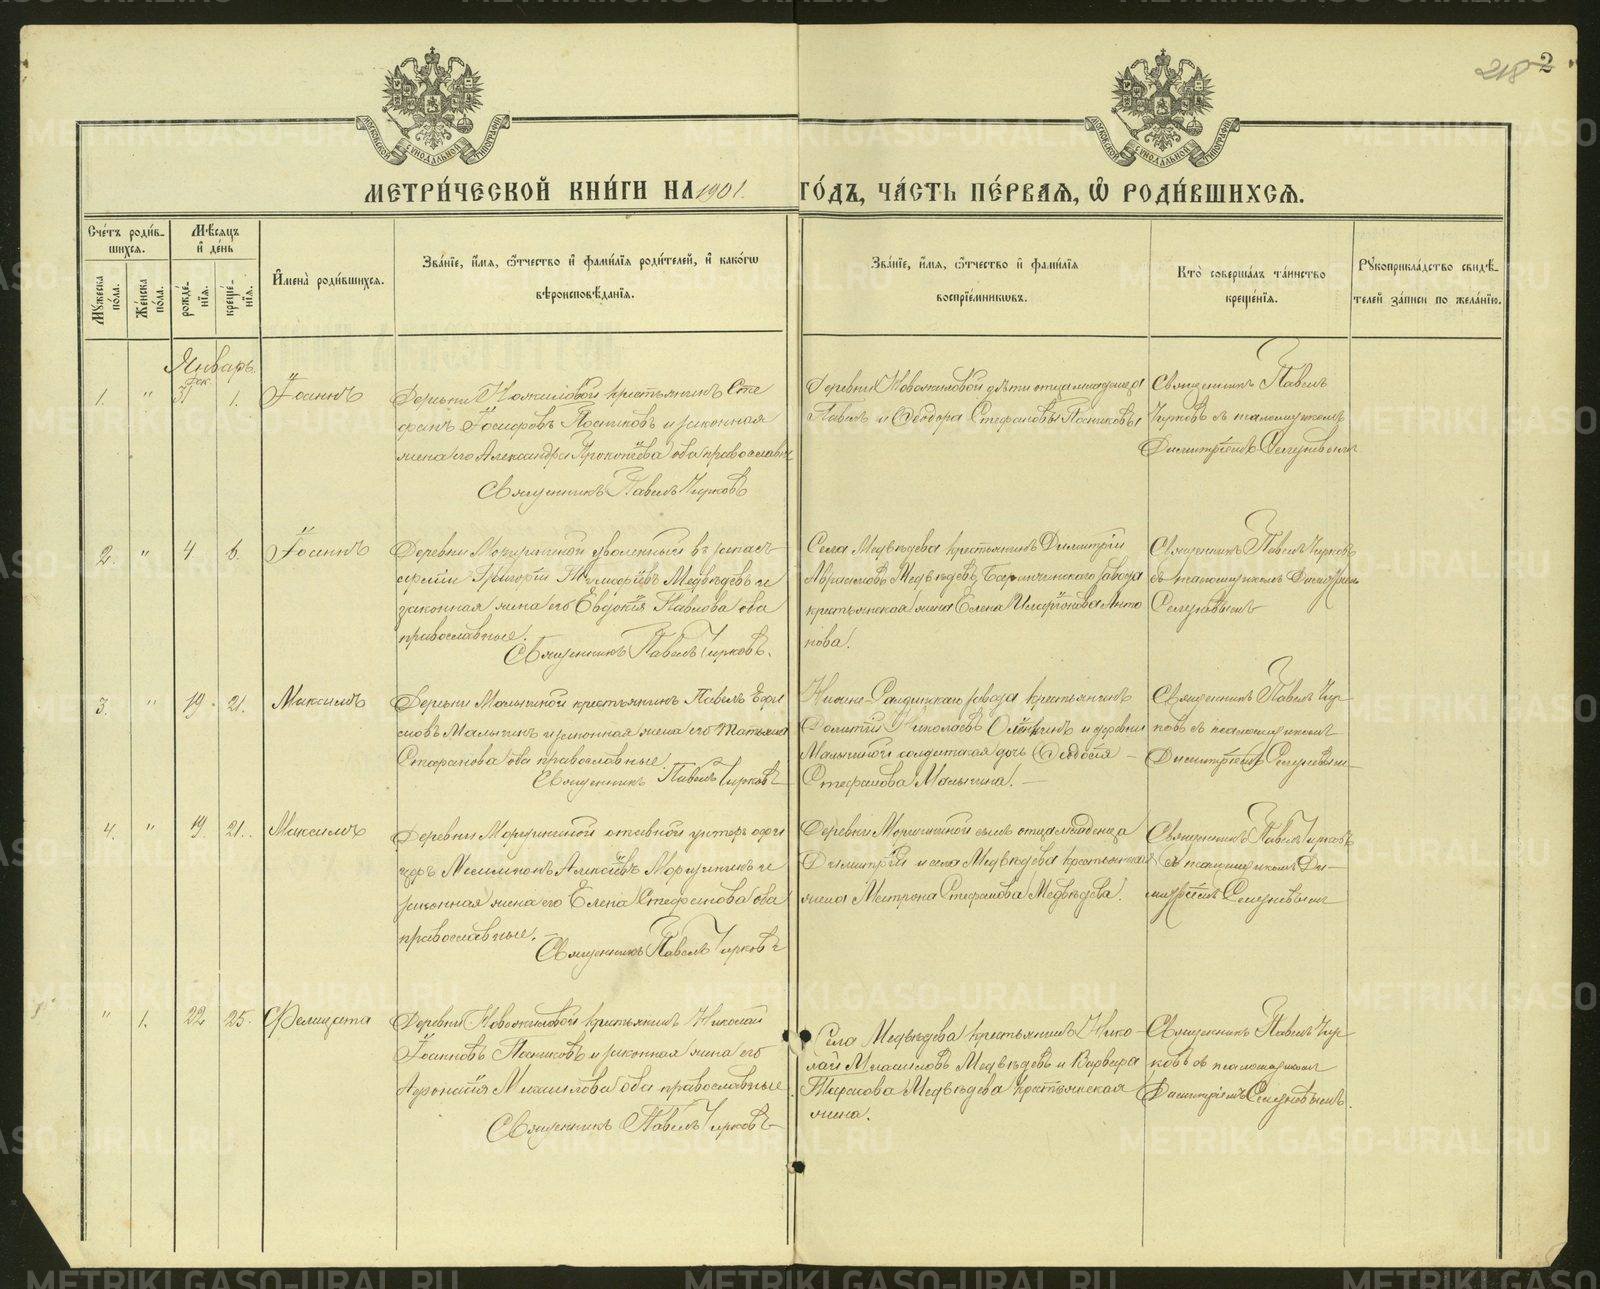 218 2
МОСКОВСКОЙ СѴНОДАЛЬНОЙ ТИПОГРАФІИ
МОСКОВСКОЙ СѴНОДАЛЬНОЙ ТИПОГРАФІИ
МЕТРИ́ЧЕСКОЙ КНИ́ГИ НА 1901. ГО́ДЪ, ЧА́СТЬ ПЕ́РВАЯ, Ѽ РОДИ́ВШИХСЯ.
Сче́тъ роди́в-
шихся.
Мѣ́сяцъ
и҆ де́нь
Мꙋ́жеска по́ла.
Же́нска по́ла.
рожде́-
нїя.
креще́-
нїя.
И҆мена̀ роди́вшихся.
Зва́нїе, и҆́мя, ѻ҆́тчество и҆ фами́лїя роди́телей, и҆ како́гѡ
вѣроисповѣ́данїя.
Зва́нїе, и҆́мя, ѻ҆́тчество и҆ фами́лїя
воспрїе́мникѡвъ.
Кто̀ соверша́лъ та́инство
креще́нїя.
Рꙋкоприкла́дство свидѣ́-
телей за́писи по жела́нїю.
Январь.
1. " Дек. 31 1. Іоаннъ
Деревни Новожиловой крестьянинъ Сте
фанъ Іосифовъ Посниковъ и законная
жена его Александра Прокопіева оба православн
Священникъ Павелъ Чирковъ
Деревни Новожиловой дѣти отца младенца
Павелъ и Ѳеодора Стефановы Посниковы
Священникъ Павелъ
Чирковъ съ псаломщикомъ
Димитріемъ
2. " 4 6. Іоаннъ
Деревни уволенный въ запасъ
арміи Григорій Медвѣдевъ и
законная жена его Евдокія Павлова оба
православные.
Священникъ Павелъ Чирковъ.
Села Медвѣдева крестьянинъ Димитрій
Медвѣдевъ завода
крестьянская жена Елена Иларіонова Анто
нова.
Священникъ Павелъ Чирковъ
съ псаломщикомъ
3. " 19 21. Максимъ
Деревни Малыгиной крестьянинъ Павелъ Ефи
мовъ Малыгинъ и законная жена его Татьяна
Стефанова оба православные.
Священникъ Павелъ Чирковъ
Нижне-Салдинскаго завода крестьянинъ
Николаевъ и деревни
Малыгиной солдатская дочь Ѳеодосія
Стефанова Малыгина.
Священникъ Павелъ Чир
ковъ съ псаломщикомъ
Димитріемъ
4. " 19 21. Максимъ
Деревни отставной унтеръ офи
церъ Алексіевъ и
законная жена его Елена Стефанова оба
православные.
Священникъ Павелъ Чирковъ
Деревни сынъ отца младенца
Димитрій и села Медвѣдева крестьянская
жена Матрона Стефанова Медвѣдева.
Священникъ Павелъ Чирковъ
съ псаломщикомъ Ди-
митріемъ
" 1. 22 25. Фелицата
Деревни Новожиловой крестьянинъ Николай
Іоанновъ Посниковъ и законная жена его
Михаилова оба православные
Священникъ Павелъ Чирковъ
Села Медвѣдева крестьянинъ Нико-
лай Михаиловъ Медвѣдевъ и Варвара
Тарасова Медвѣдева крестьянская
жена.
Священникъ Павелъ Чир
ковъ съ псаломщикомъ
Димитріемъ
METRIKI.GASO-URAL.RU